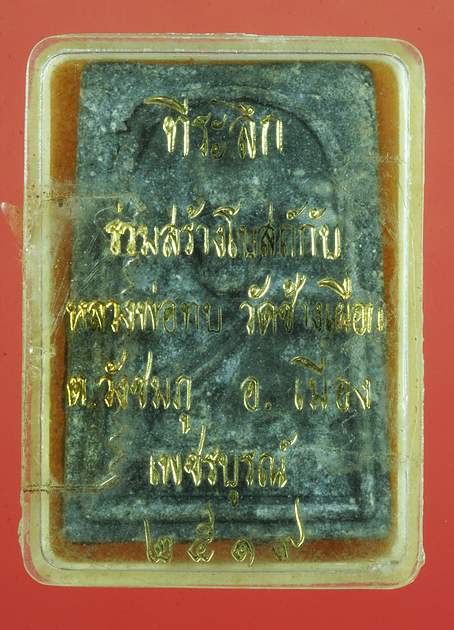 ที่ระลึก
ช่วมสร้างโบสถ์กับ
หลวงพ่อทบ วัดช้างเผือก
ต.วังชมภู อ. เมือง
เพชรบูรณ์
๒๕๑๗